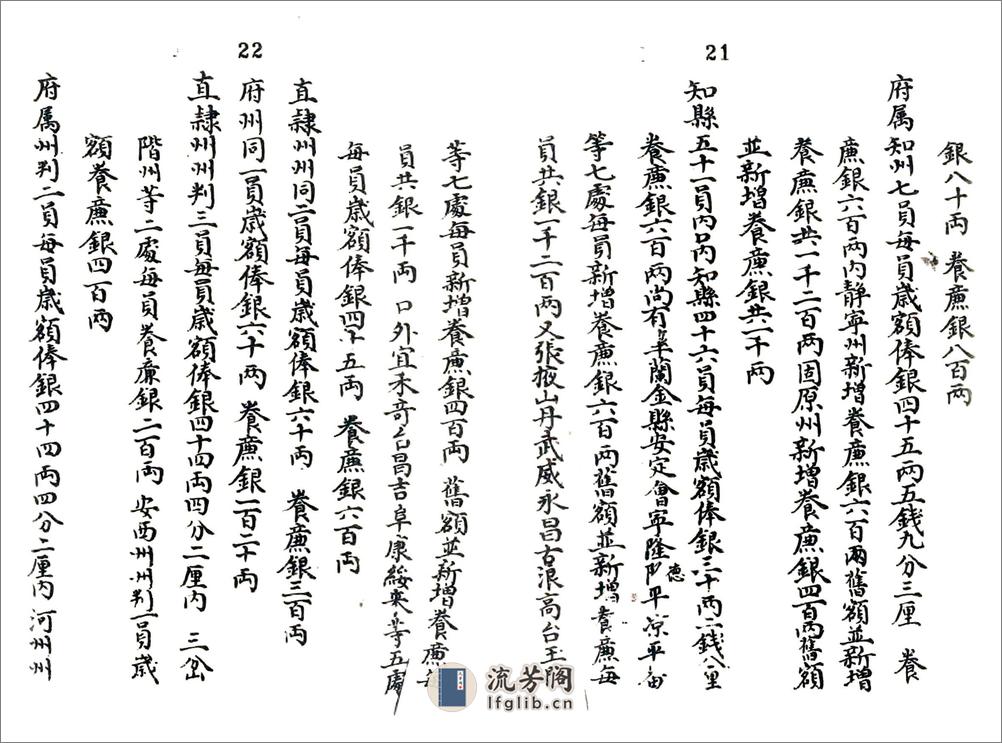 21
銀八十両 養廉銀八百両
府属知州七員每員歲額俸銀四十五两五錢九分三厘 養
廉銀六百两内静寧州新增養廉銀六百两舊額並新增
養廉銀共一千二百两固原州新增養廉銀四百两舊額
並新增養廉銀共一千两
知縣五十一員内口内知縣四十六員每員歲額俸銀三十两二錢八厘
養廉銀六百两尚有皋蘭金縣安定會寧隆德平凉平番
等七處每員新增養廉銀六百两舊額並新增養廉每
員共銀一千二百两又張掖山丹武威永昌古浪高台玉
22
等七處每員新增養廉銀四百両 舊額並新增養廉每
員共銀一千両 口外宜禾奇台昌吉阜康綏來等五處
每員歲額俸銀四十五両 養廉銀六百両
直隸州州同二員每員歲額俸銀六十両 養廉銀三百両
府州同一員歲額俸銀六十两 養廉銀一百二十両
直隸州州判三員每員歲額俸銀四十四両四分二厘内 三岔
階州等二處每員養廉銀二百両 安西州州判一員歲
額養廉銀四百两
府属州判二員每員歲額俸銀四十四両四分二厘内 河州州
流芳閣
lfglib.cn